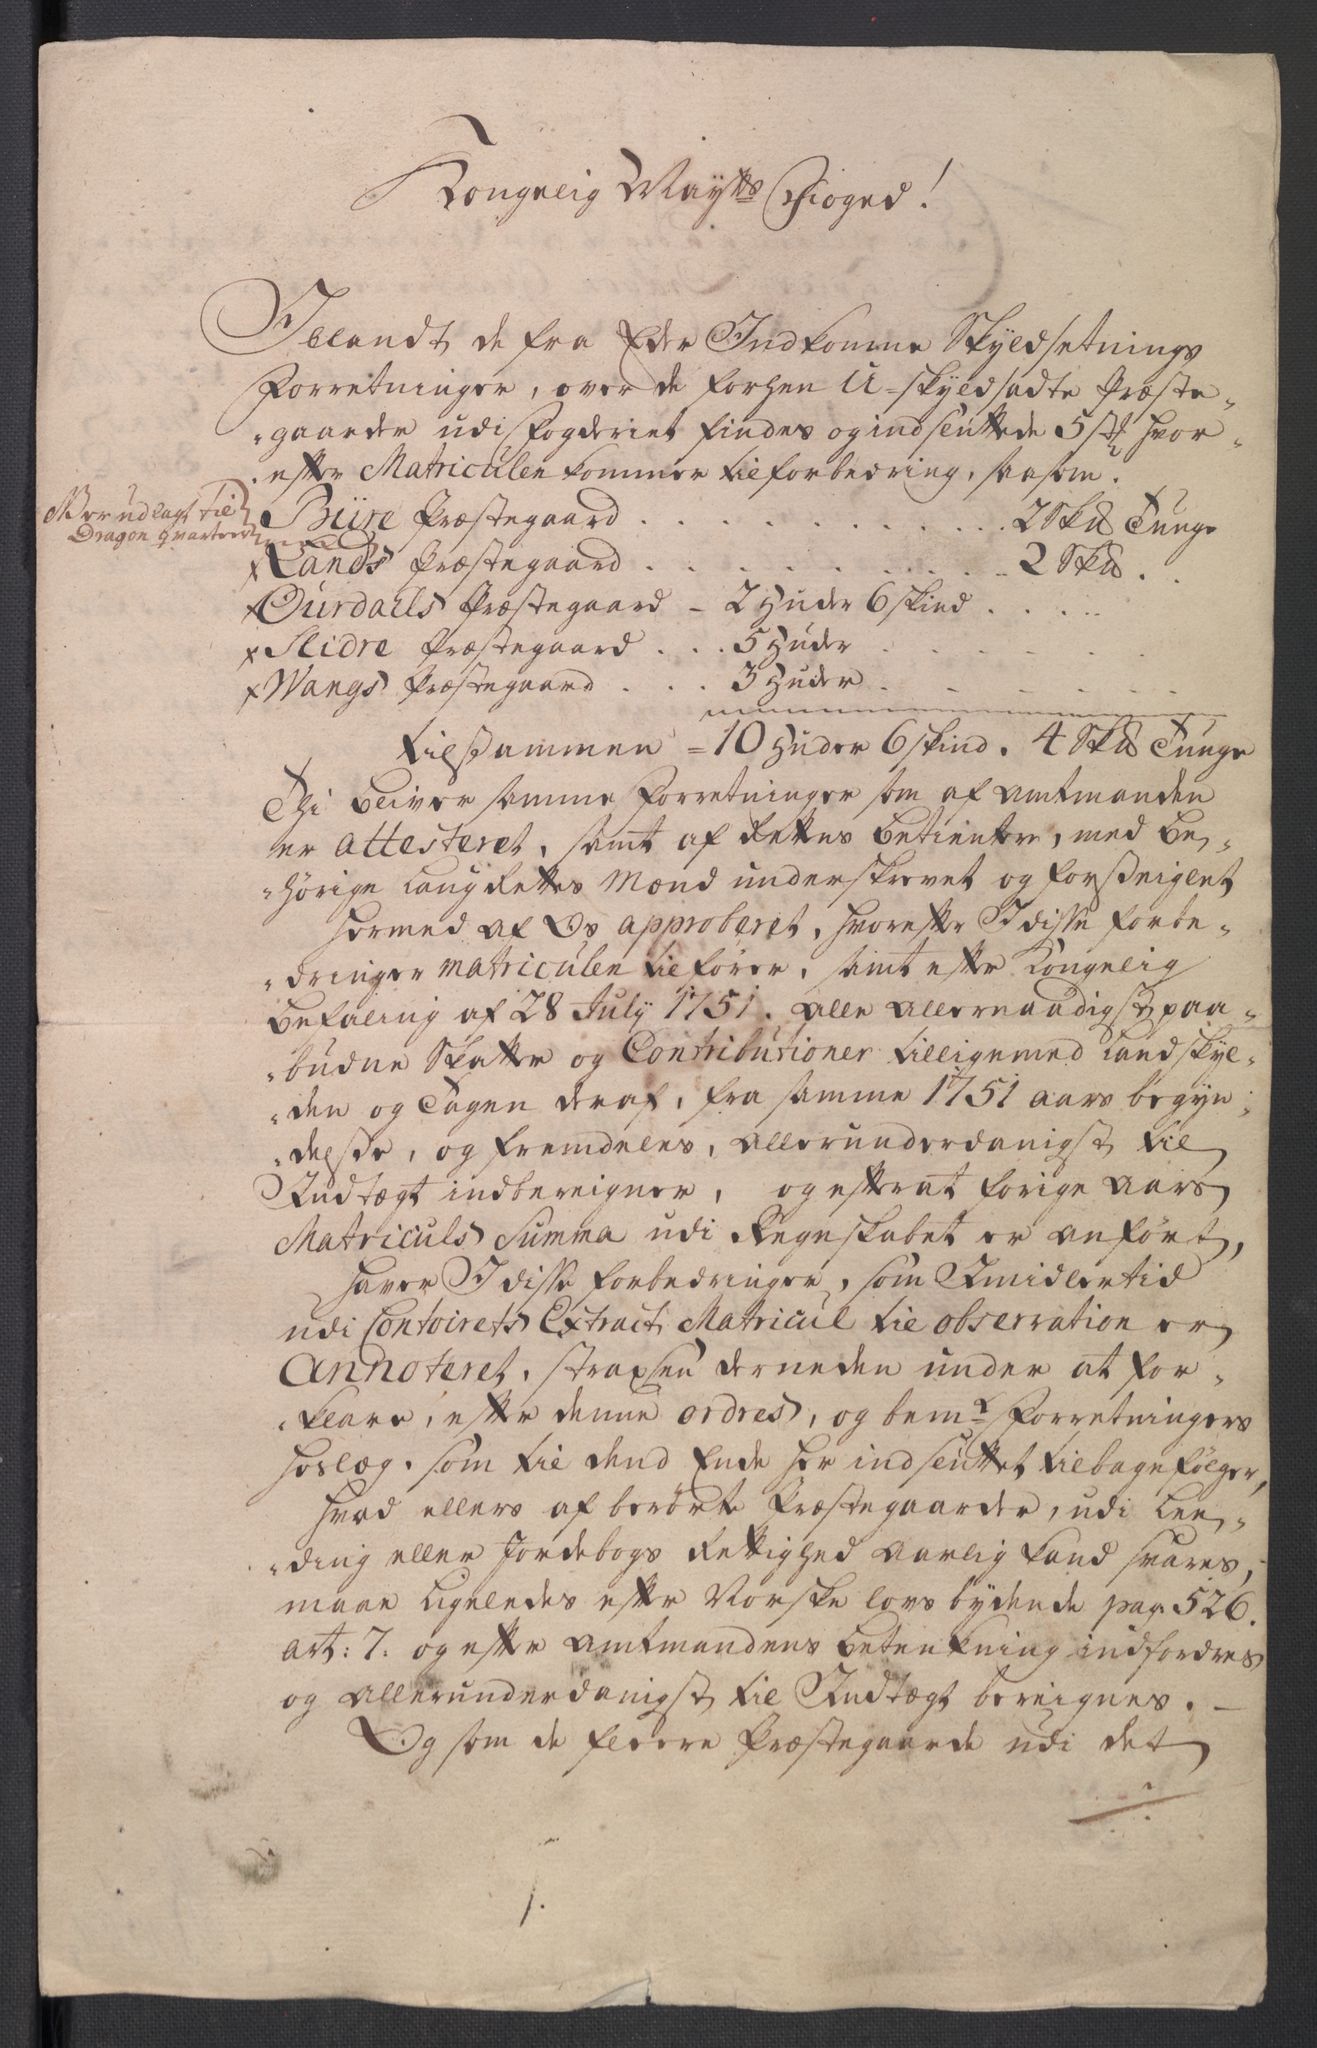 Kongelig Mayts Fioged!
Iblandt de fra Eder Indkomne Skyldsetnings
Forretninger, over de forhen U-skyldsadte Præste-
-gaarder udi Fogderiet findes og indsentede 5 st hvor-
-efter Matriculen kommer til forbedring, saasom.
Er udlagt til
Dragon qvarteer
Biire Præstegaard . . . . . . . . . . . 2 Skd Tunge
x Lands Præstegaard . . . . . . . . . . 2 Skd . .
x Ourdalls Præstegaard - 2 Huder 6 skind . . . .
x Slidre Præstegaard . . . 5 Huder . . . . . .
x Wangs Præstegaard . . . 3 Huder . . . . . .
tilsammen = 10 Huder 6 skind. 4 Skd Tunge
Thi bliver samme Forretninger som af Amtmanden
er attesteret, samt af Rettes betientere, med be-
-hörige Laug Rettes Mænd underskrevet og forseiglet
hermed af Os approberet, hvorefter I disse forbe-
-dringer matriculen tilförer, samt efter Kongelig
befaling af 28 July 1751. alle allernaadigst paa-
-budne Skatter og Contributioner tilligemed Landskyl-
-den og Tagen deraf, fra samme 1751 aars begyn-
-delse, og fremdeles, allerunderdanigst til
Indtægt indbereigner, og efterat forige Aars
Matriculs Summa udi Regnskabet er anfört,
haver I disse forbedringer, som Imidlertid
udi Contoirets Extract Matricul til observation er
Annoteret, straxsen derneden under at for-
-klare, efter denne ordres, og bemte Forretningers
hoslæg, som til dend Ende her indsentet tilbagefölger,
hvad ellers af berörte Præstegaarder, udi Lee-
-ding eller Jordebogs Rettighed aarlig kand svares,
maae ligeledes efter Norske lovs bydende pag. 526.
art: 7. og efter Amtmandens betenkning indfordres
og allerunderdanigst til Indtægt bereignes. -
Og som de fleere Præstegaarde udi det
1.